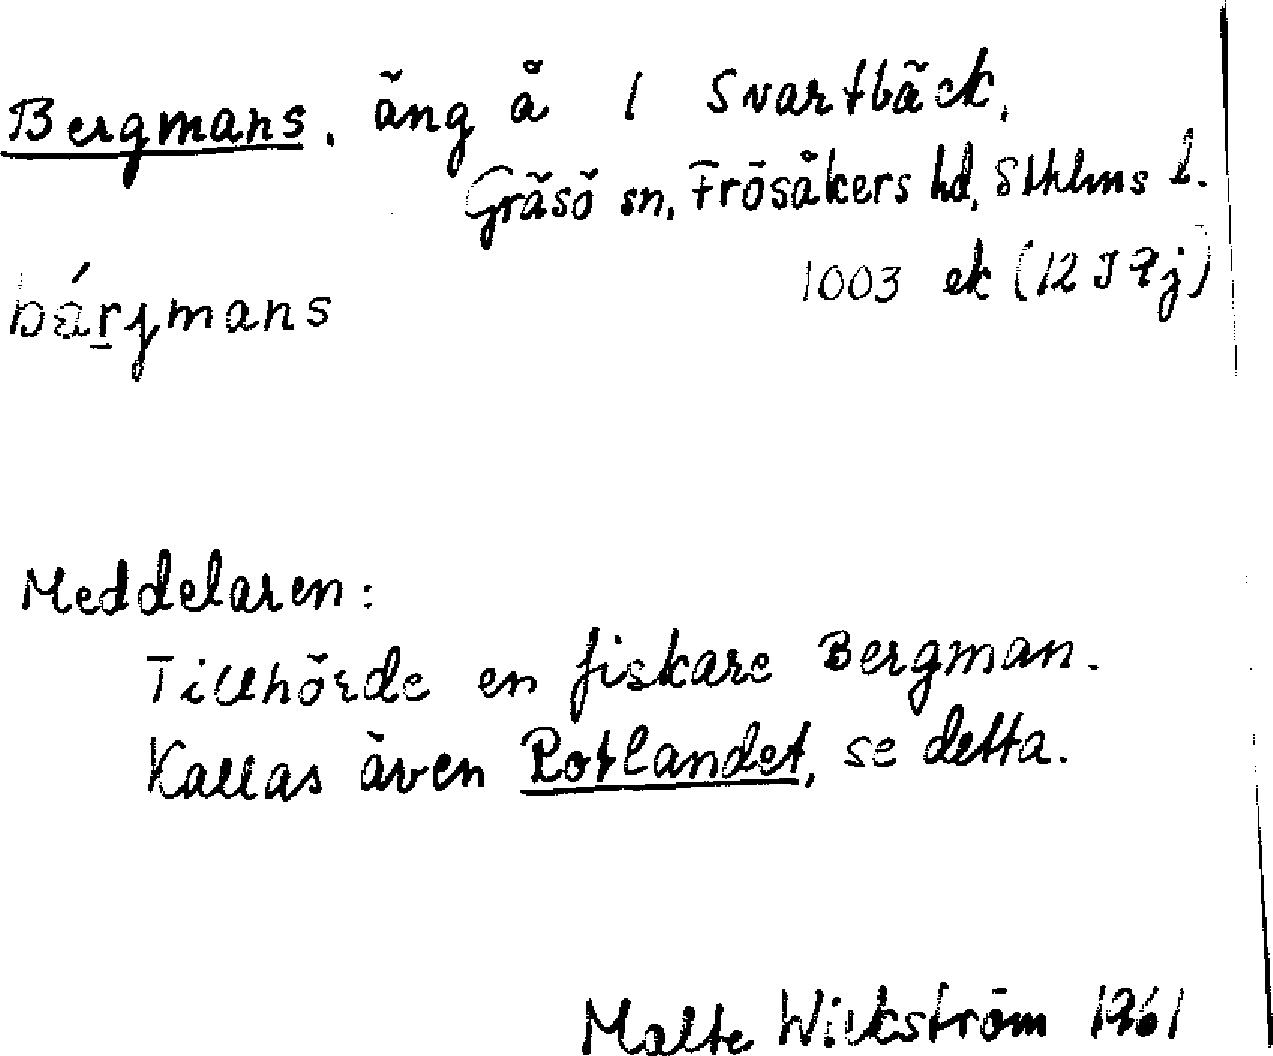 Bergmans, äng å 1 Svartbäck,
Gräsö sn, Frösåkers hd, Sthlms l.
1003 ek (12 I 9j)
bárjmans
Meddelaren:
Tillhörde en fiskare Bergman.
Kallas även Rotlandet, se detta.
Malte Wickström 1961